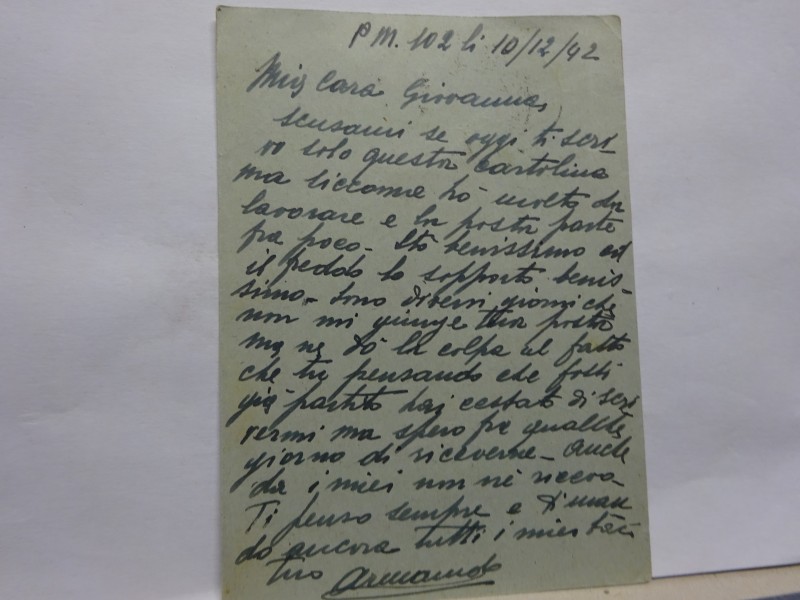 P.M. 102 li 10/12/42
Mia Cara Giovanna,
scusami se oggi ti scri-
vo solo questa cartolina
ma siccome hò molto da
lavorare e la posta parte
fra poco - Sto benissimo ed
il freddo lo sopporto benis-
simo - Sono diversi giorni che
non mi giunge tua posta
ma ne dò la colpa al fatto
che tu pensando che fossi
già partito hai cessato di scri
vermi ma spero fra qualche
giorno di riceverne - Anche
da i miei non ne ricevo
Ti penso sempre e ti man
do ancora tutti i miei baci
tuo Armando